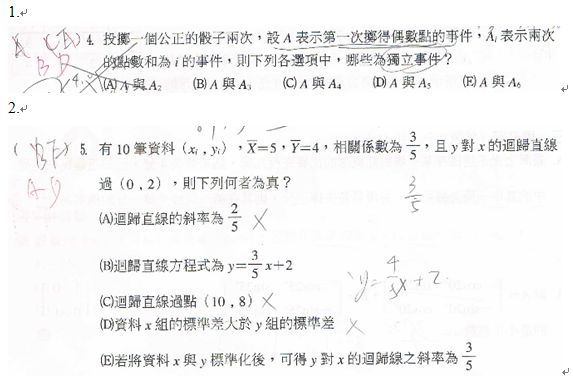 1.
4. 投擲一個公正的骰子兩次，設 A 表示第一次擲得偶數點的事件，Aᵢ 表示兩次
的點數和為 i 的事件，則下列各選項中，哪些為獨立事件？
(A) A 與 A₂ (B) A 與 A₃ (C) A 與 A₄ (D) A 與 A₅ (E) A 與 A₆
2.
5. 有 10 筆資料（xᵢ , yᵢ），X̄=5，Ȳ=4，相關係數為 3/5，且 y 對 x 的迴歸直線
過（0 , 2），則下列何者為真？
3/5
(A)迴歸直線的斜率為 2/5 ×
(B)迴歸直線方程式為 y=3/5 x+2
y=4/5x+2
(C)迴歸直線過點（10 , 8）×
(D)資料 x 組的標準差大於 y 組的標準差 ×
(E)若將資料 x 與 y 標準化後，可得 y 對 x 的迴歸線之斜率為 3/5